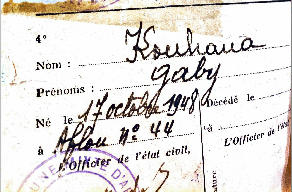 4°
Nom : Kouhana
Gaby
Prénoms :
Né le 17 octobre 1948
à Aflou n° 44
L'Officier de l'état civil,
Décédé le
à
L'Officier de l'ét